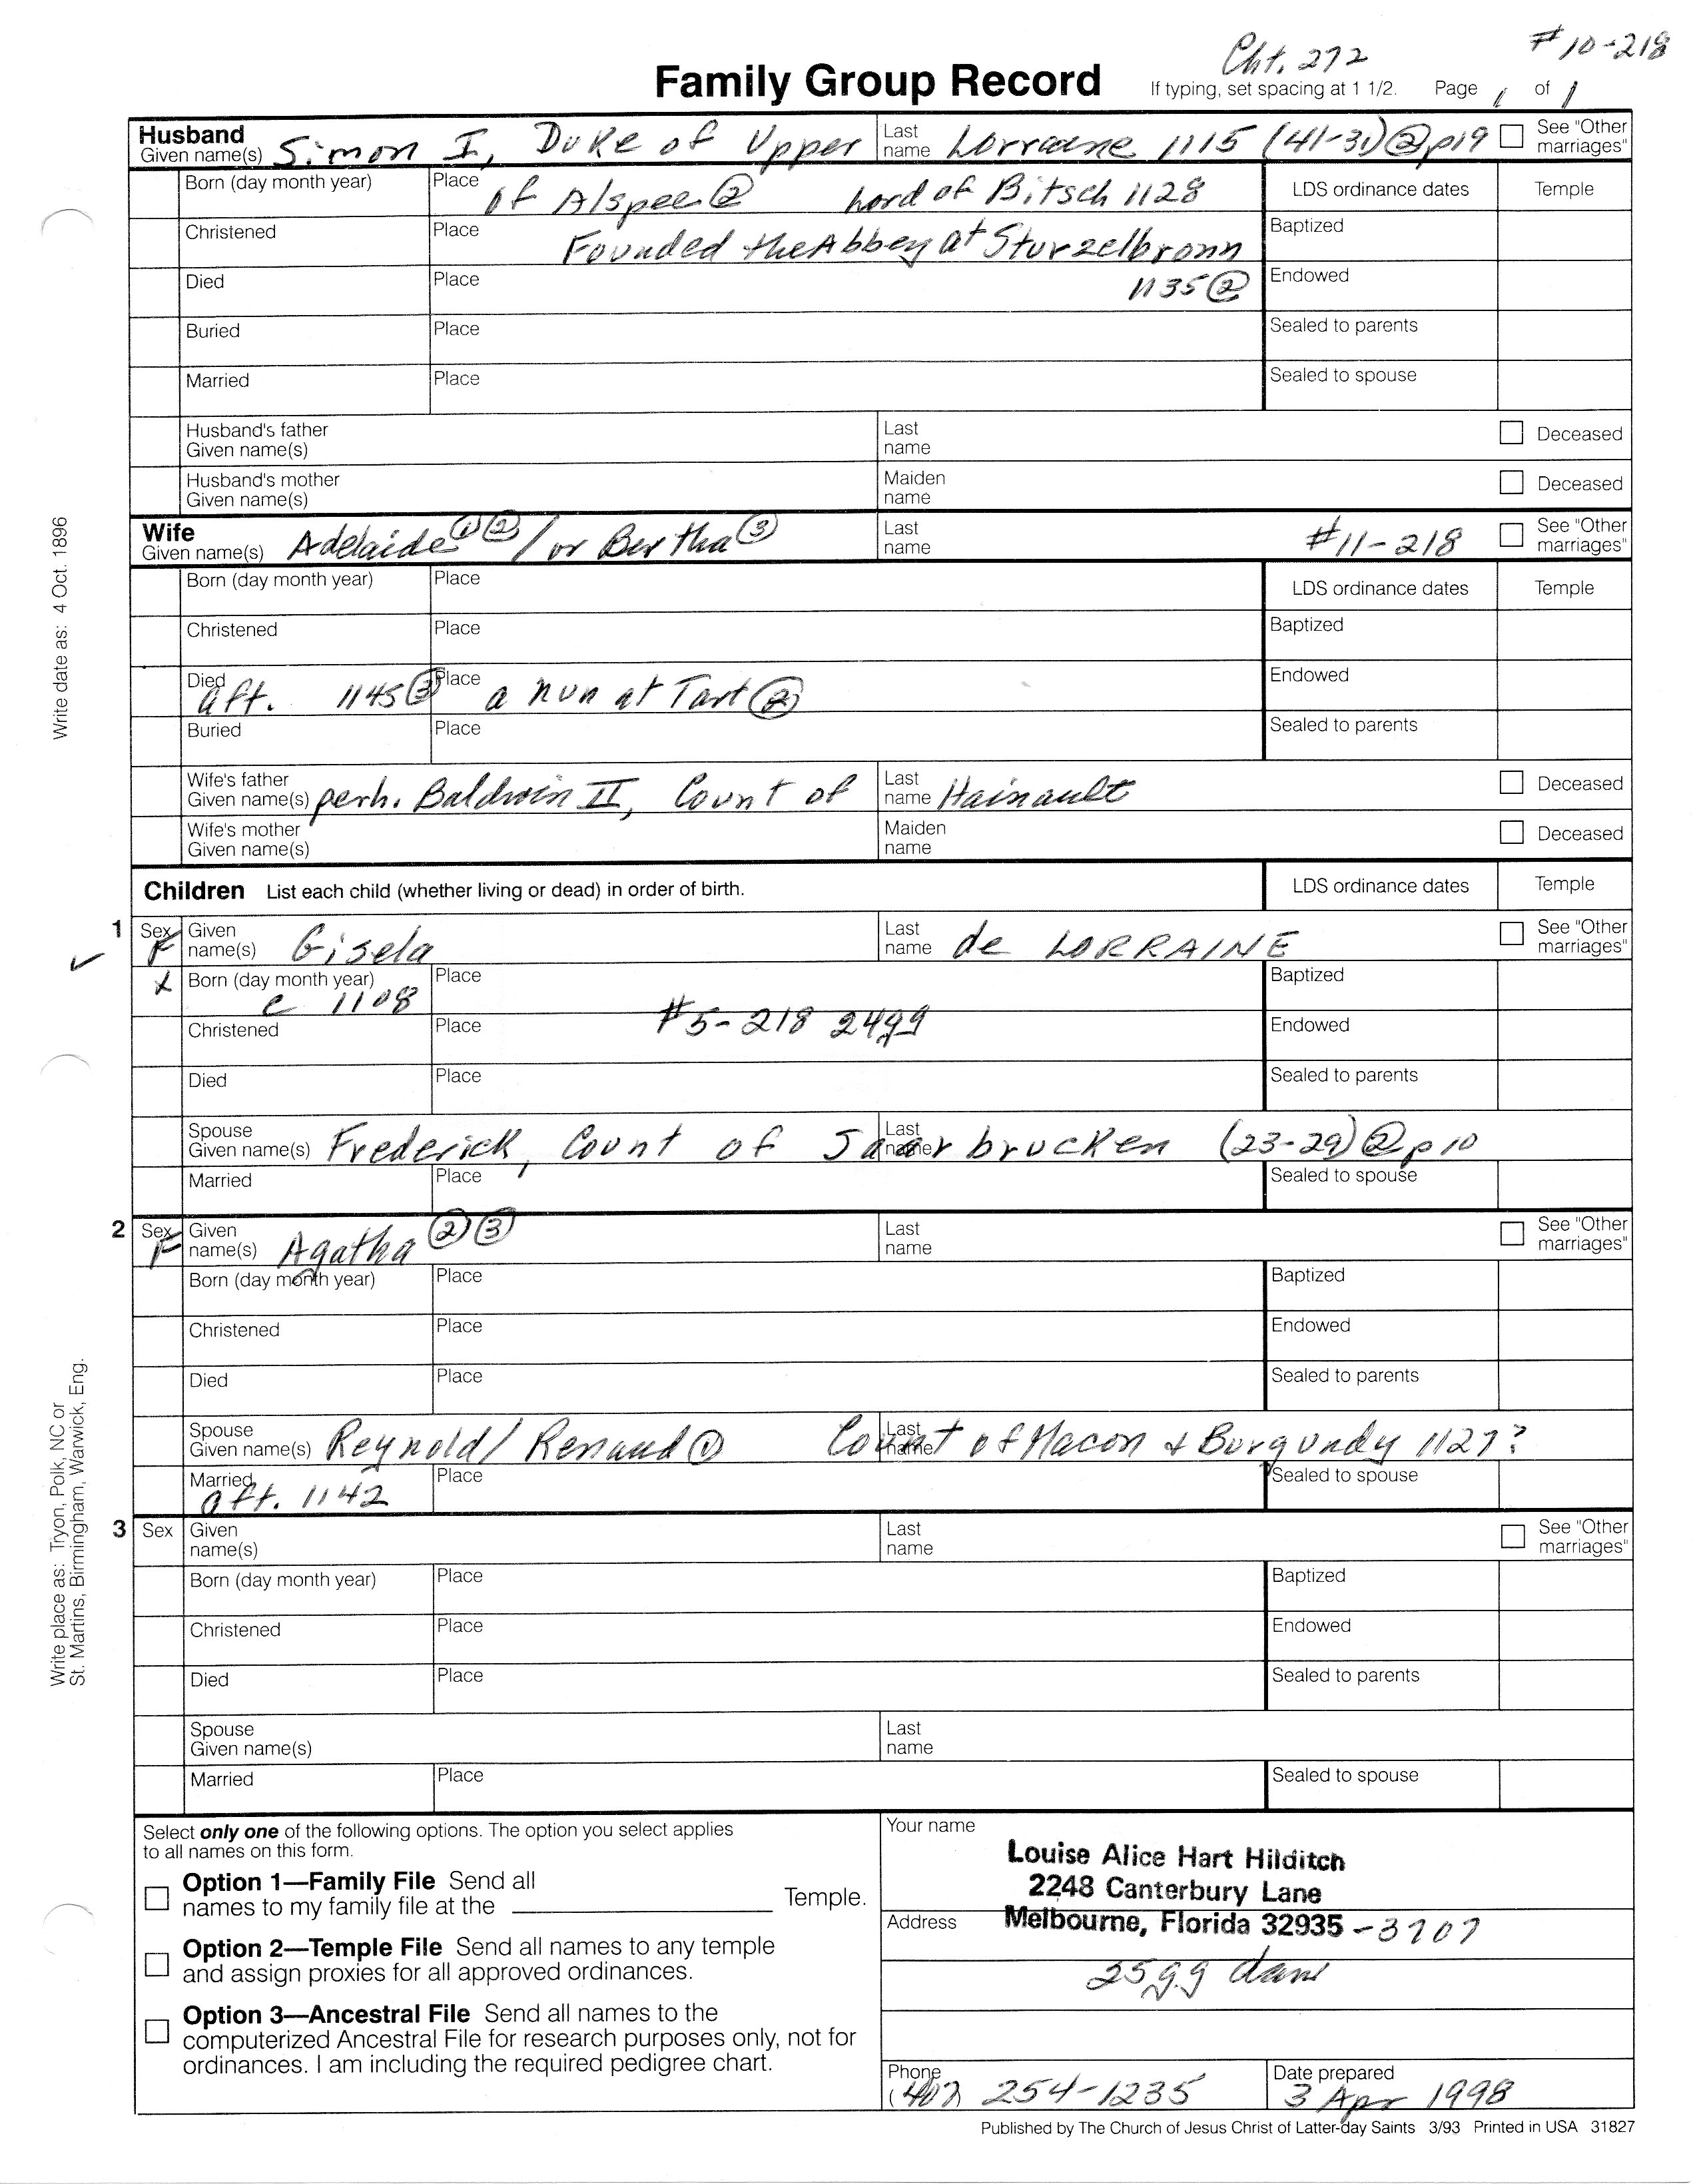 Cht. 272 #10-218
Family Group Record If typing, set spacing at 1 1/2. Page 1 of 1
Husband Given name(s) Simon I, Duke of Upper Last name Lorraine 1115 (41-31) ② p19 See "Other marriages"
Born (day month year) Place of Alspee ② Lord of Bitsch 1128 LDS ordinance dates Temple
Christened Place Founded the Abbey at Sturzelbronn Baptized
Died Place 1135 ② Endowed
Buried Place Sealed to parents
Married Place Sealed to spouse
Husband's father Given name(s) Last name Deceased
Husband's mother Given name(s) Maiden name Deceased
Wife Given name(s) Adelaide ① ② / or Bertha ③ Last name #11-218 See "Other marriages"
Born (day month year) Place LDS ordinance dates Temple
Christened Place Baptized
Died aft. 1145 ③ Place a nun at Tart ② Endowed
Buried Place Sealed to parents
Wife's father Given name(s) perh. Baldwin II, Count of Last name Hainault Deceased
Wife's mother Given name(s) Maiden name Deceased
Children List each child (whether living or dead) in order of birth. LDS ordinance dates Temple
1 Sex F Given name(s) Gisela Last name de LORRAINE See "Other marriages"
✓ x Born (day month year) c 1108 Place Baptized
Christened Place #5-218 24gg Endowed
Died Place Sealed to parents
Spouse Given name(s) Frederick, Count of Saarbrucken Last name (23-29) ② p 10
Married Place Sealed to spouse
2 Sex F Given name(s) Agatha ② ③ Last name See "Other marriages"
Born (day month year) Place Baptized
Christened Place Endowed
Died Place Sealed to parents
Spouse Given name(s) Reynold/ Renaud ① Last name Count of Macon & Burgundy 1127?
Married aft. 1142 Place Sealed to spouse
3 Sex Given name(s) Last name See "Other marriages"
Born (day month year) Place Baptized
Christened Place Endowed
Died Place Sealed to parents
Spouse Given name(s) Last name
Married Place Sealed to spouse
Select only one of the following options. The option you select applies
to all names on this form.
Option 1—Family File Send all
names to my family file at the Temple.
Option 2—Temple File Send all names to any temple
and assign proxies for all approved ordinances.
Option 3—Ancestral File Send all names to the
computerized Ancestral File for research purposes only, not for
ordinances. I am including the required pedigree chart.
Your name
Louise Alice Hart Hilditch
2248 Canterbury Lane
Address Melbourne, Florida 32935 -3707
25gg
Phone (407) 254-1235 Date prepared 3 Apr 1998
Published by The Church of Jesus Christ of Latter-day Saints 3/93 Printed in USA 31827
Write date as: 4 Oct. 1896
Write place as: Tryon, Polk, NC or
St. Martins, Birmingham, Warwick, Eng.